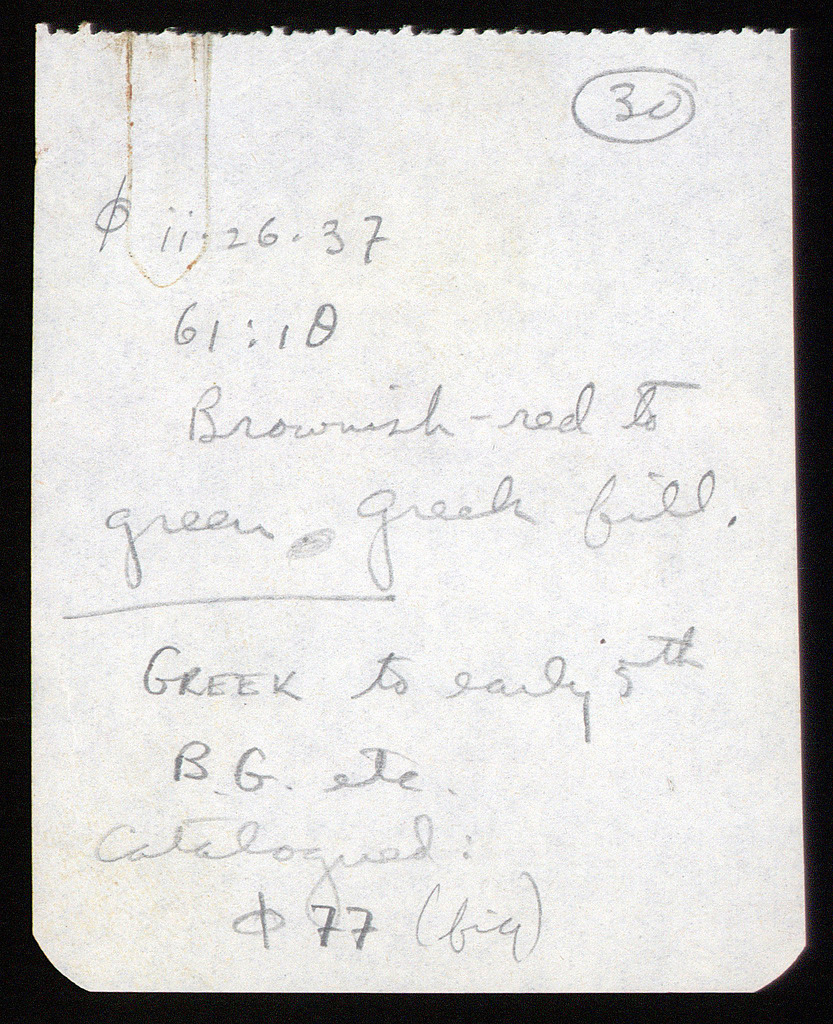 30
φ ii·26·37
61:1θ
Brownish-red to
green. Greek fill.
GREEK to early 5th
B.G. etc.
Catalogued:
φ 77 (fig)